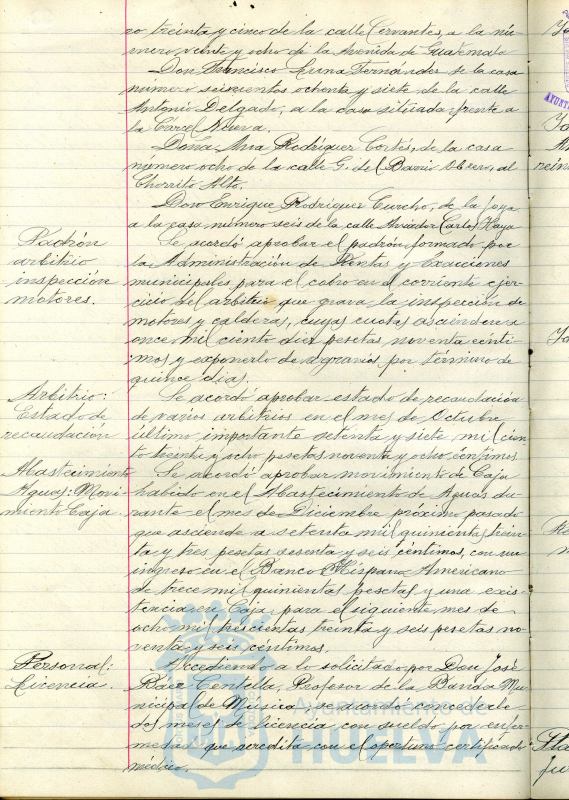 ro treinta y cinco de la calle Cervantes, a la nú-
mero veinte y ocho de la Avenida de Guatemala
Don Francisco Luna Fernández de la casa
número seiscientos ochenta y siete de la calle
Antonio Delgado, a la casa situada frente a
la Cárcel Nueva.
Doña Ana Rodríguez Cortés, de la casa
número ocho de la calle G. del Barrio Obrero, al
Chorrito Alto.
Don Enrique Rodríguez Curcho, de la Joya
a la casa número seis de la calle Aviador Carlos Haya
Padrón
arbitrio
inspección
motores.
Se acordó aprobar el padrón formado por
la Administración de Rentas y Exacciones
municipales para el cobro en el corriente ejer-
cicio del arbitrio que grava la inspección de
motores y calderas, cuyas cuotas ascienden a
once mil ciento diez pesetas noventa cénti-
mos y exponerlo de agravios por término de
quince días.
Arbitrio:
Estado de
recaudación
Se acordó aprobar estado de recaudación
de varios arbitrios en el mes de Octubre
último importante setenta y siete mil cien
to veinte y ocho pesetas noventa y ocho céntimos.
Abastecimiento
Aguas: Movi-
miento Caja.
Se acordó aprobar movimiento de Caja
habido en el Abastecimiento de Aguas du-
rante el mes de Diciembre próximo pasado
que asciende a setenta mil quinientas trein
ta y tres pesetas sesenta y seis céntimos, con un
ingreso en el Banco Hispano Americano
de trece mil quinientas pesetas y una exis-
tencia en Caja para el siguiente mes de
ocho mil trescientas treinta y seis pesetas no
venta y seis céntimos.
Personal:
Licencia.
Accediendo a lo solicitado por Don José
Báez Centella, Profesor de la Banda Mu-
nicipal de Música, se acordó concederle
dos meses de licencia con sueldo por enfer
medad que acredita con el oportuno certificado
médico.
Ayuntamiento de
HUELVA